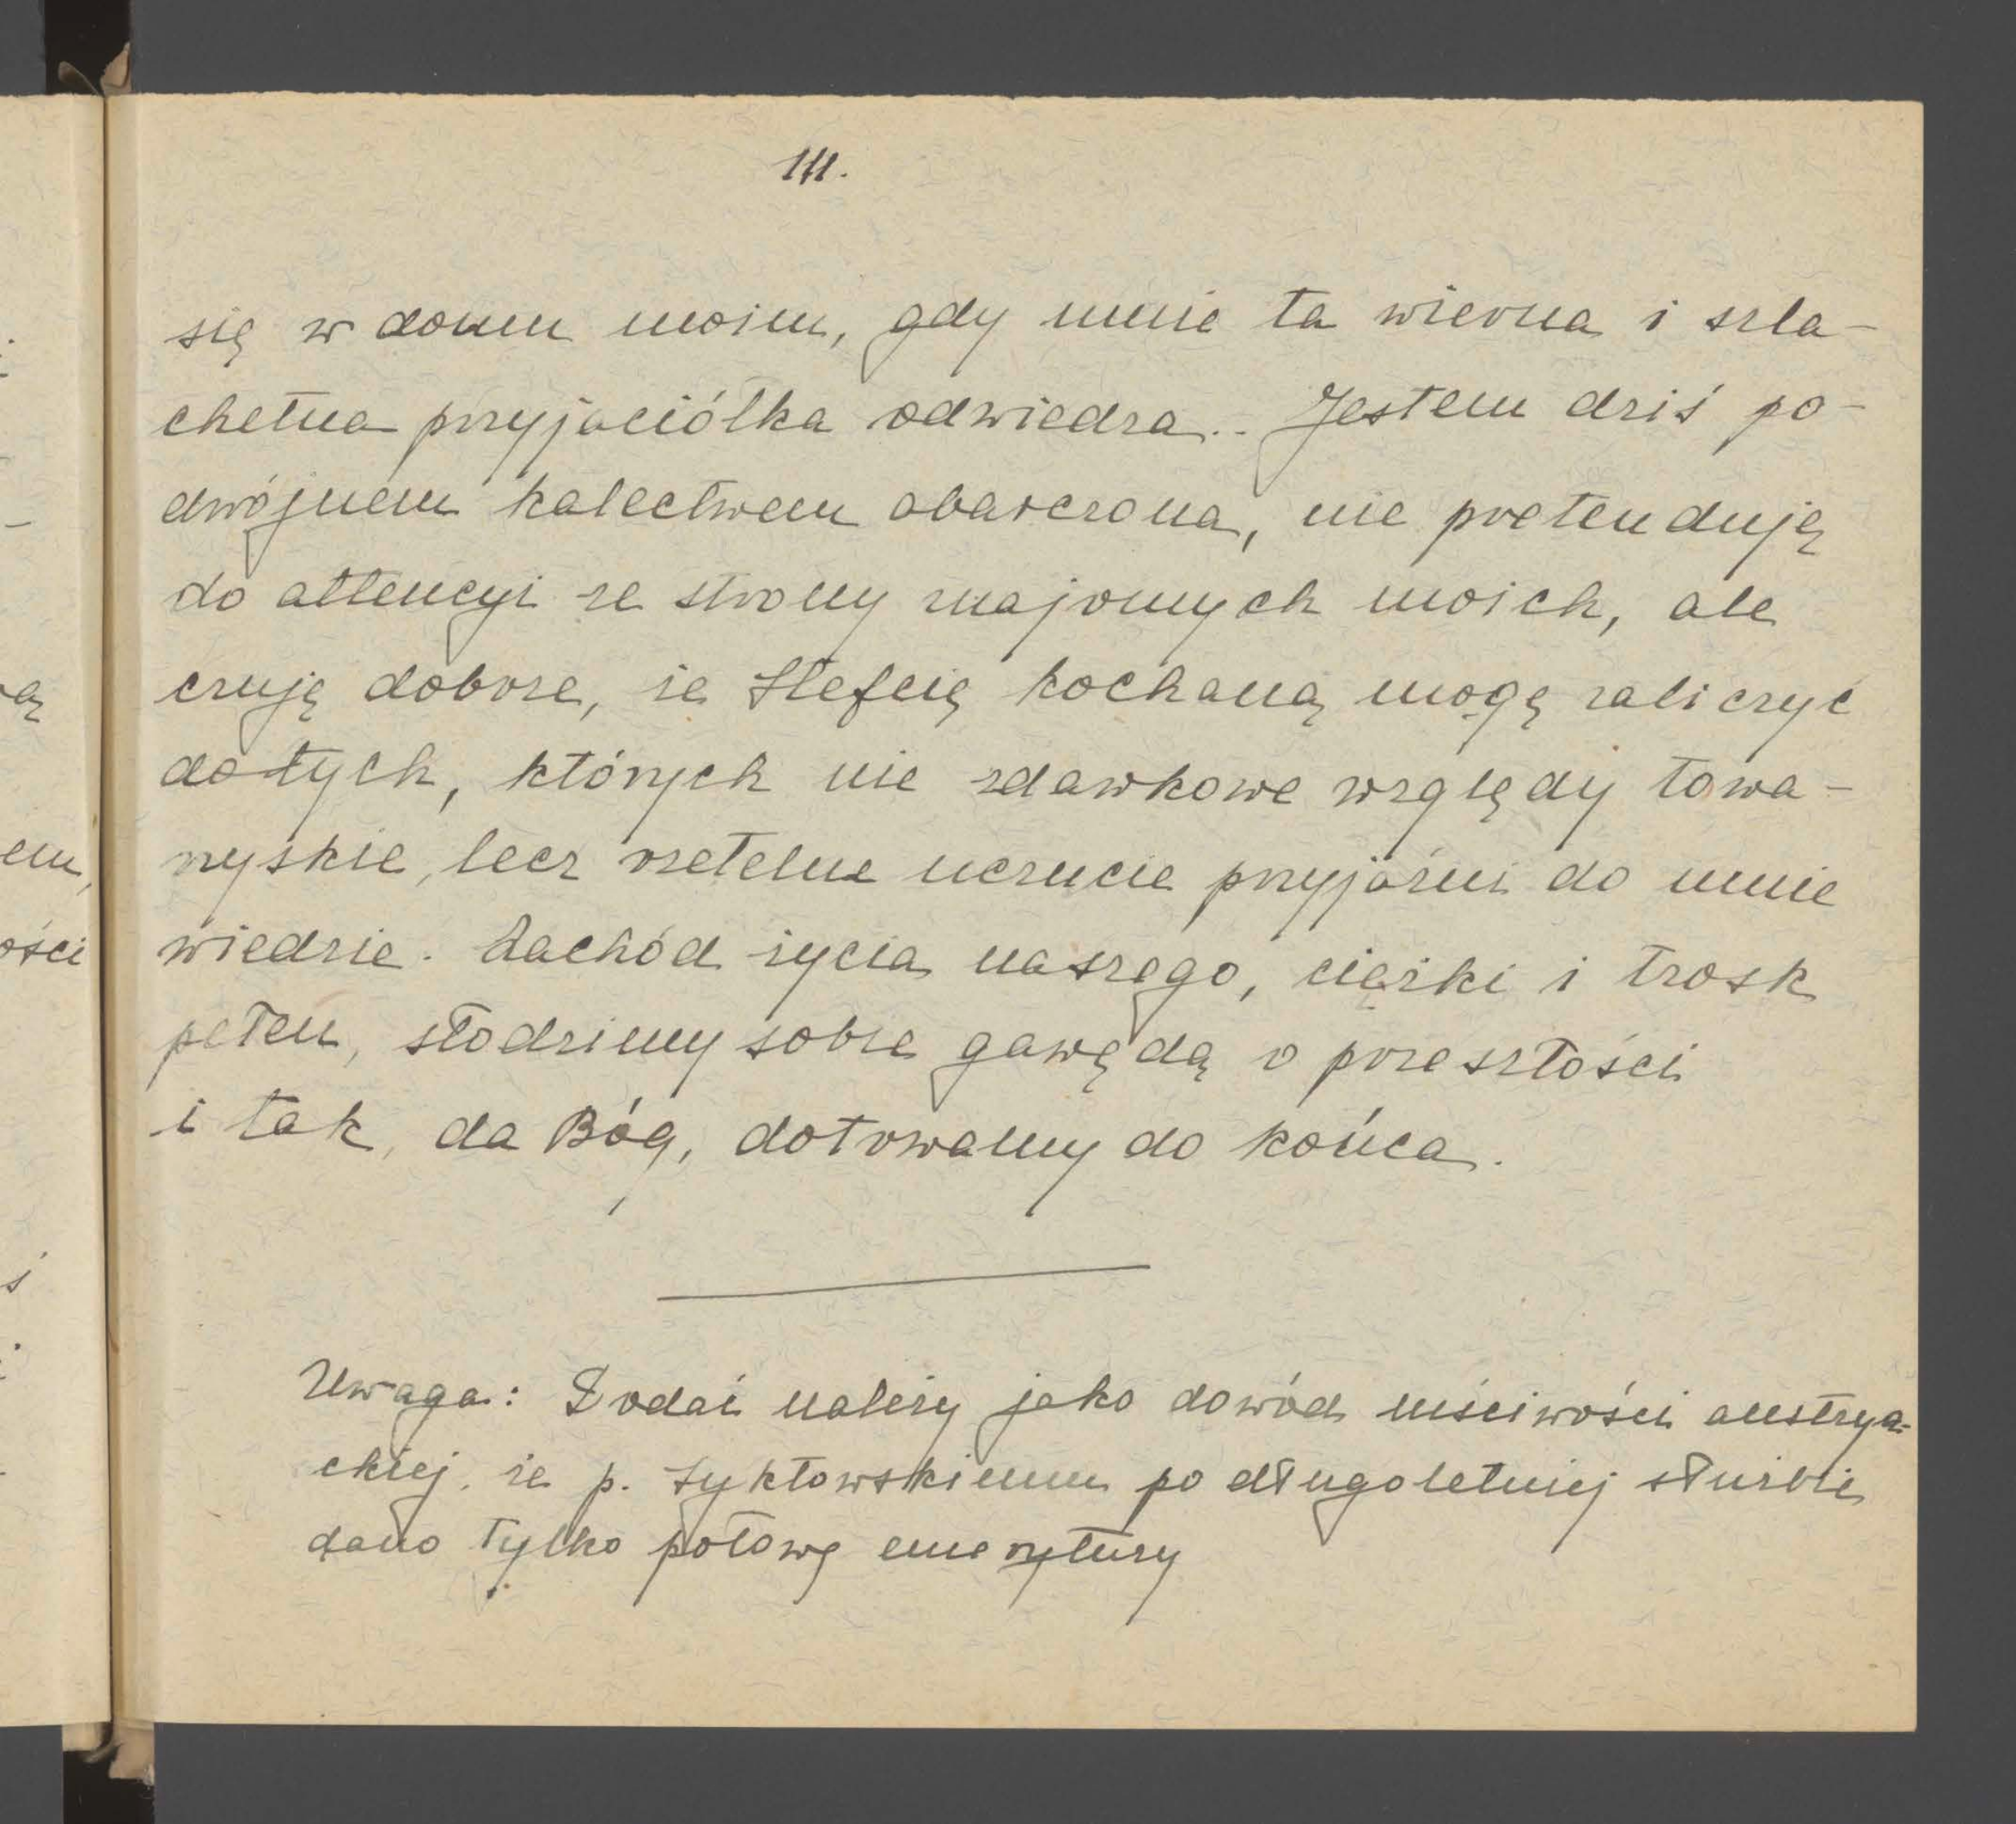 111.
się w domu moim, gdy mnie ta wierna i szla-
chetna przyjaciółka odwiedza.. Jestem dziś po-
dwójnem kalectwem obarczona, nie pretenduję
do attencyi ze strony znajomych moich, ale
czuję dobrze, że Stefcię kochaną mogę zaliczyć
do tych, których nie zdawkowe względy towa-
rzyskie, lecz rzetelne uczucie przyjaźni do mnie
wiedzie. Zachód życia naszego, ciężki i trosk
pełen, słodzimy sobie gawędą o przeszłości
i tak, da Bóg, dotrwamy do końca.
Uwaga: Dodać należy jako dowód mściwości austrya-
ckiej, że p. Żyktowskiemu po długoletniej służbie
dano tylko połowę emerytury
ą
em,
ości